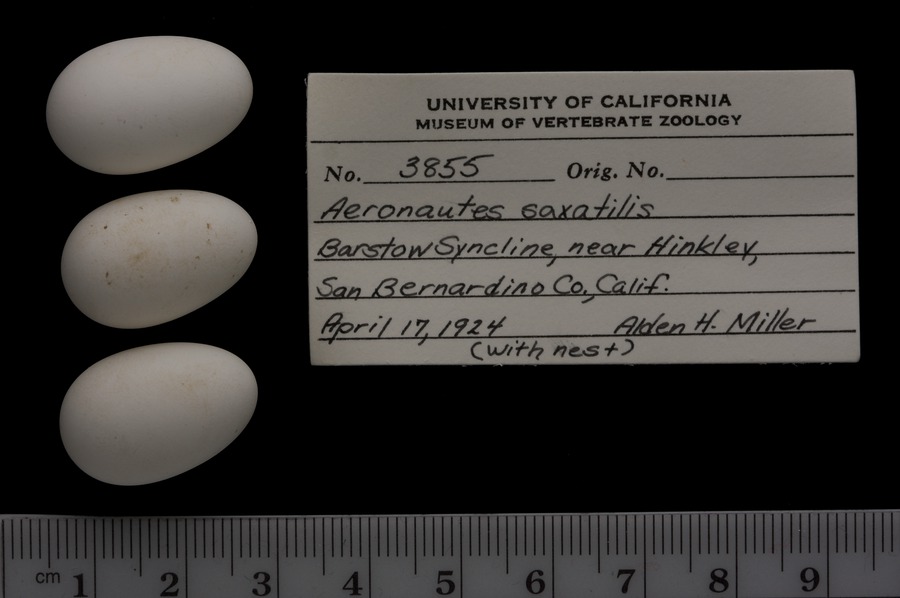 UNIVERSITY OF CALIFORNIA
MUSEUM OF VERTEBRATE ZOOLOGY
No. 3855 Orig. No.
Aeronautes saxatilis
Barstow Syncline, near Hinkley,
San Bernardino Co., Calif.
April 17, 1924 Alden H. Miller
(with nest)
cm 1 2 3 4 5 6 7 8 9